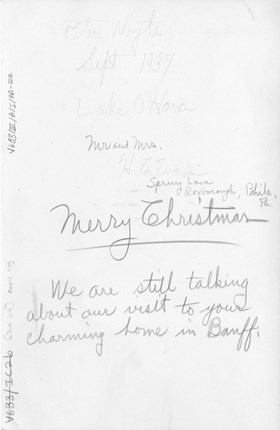 Peter Whyte
Sept 1937
Lake O'Hara
Mr and Mrs.
H. G. Evans
Spring Lane
Roxborough, Phila,
Pa.
Merry Christmas
We are still talking
about our visit to your
charming home in Banff.